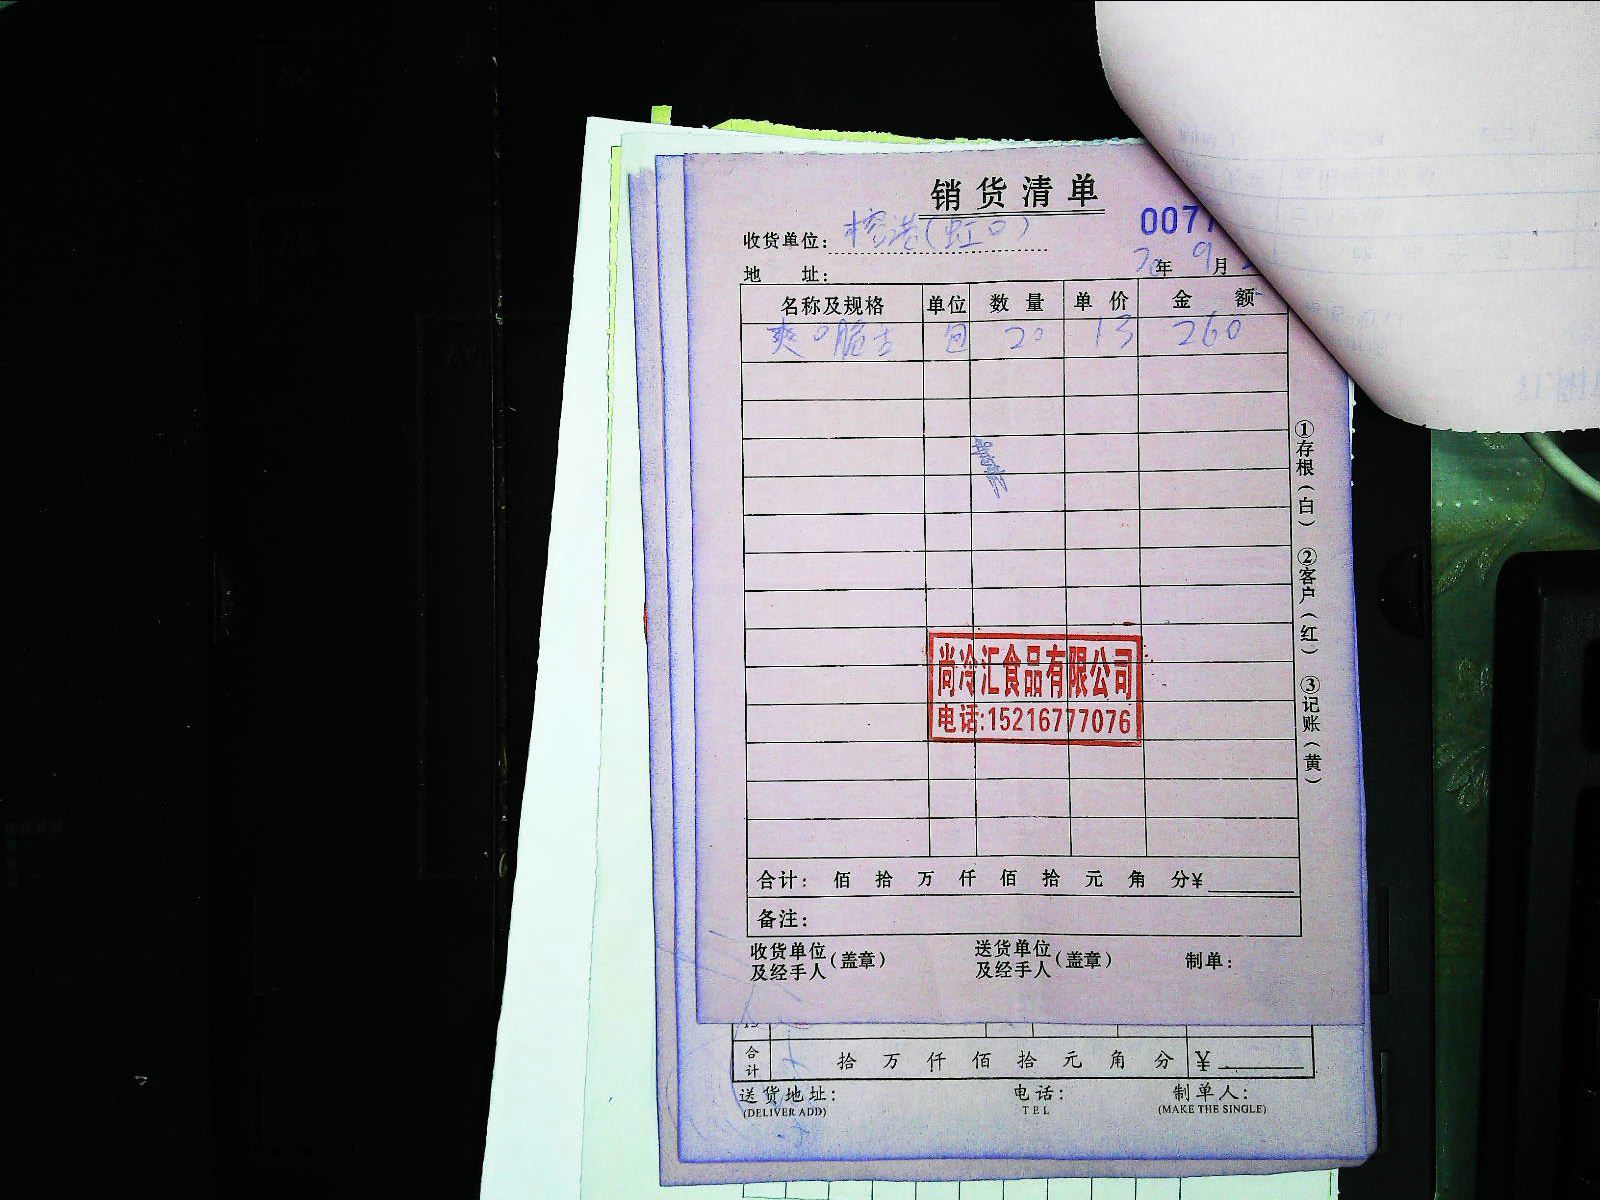 销货清单
收货单位：榕港(虹口)
0077
地 址：
20年 9月
名称及规格 单位 数量 单价 金额
爽口脆舌 包 20 13 260
①存根（白） ②客户（红） ③记账（黄）
尚冷汇食品有限公司
电话:15216777076
合计： 佰 拾 万 仟 佰 拾 元 角 分¥
备注：
收货单位及经手人(盖章) 送货单位及经手人(盖章) 制单：
合计 拾 万 仟 佰 拾 元 角 分 ¥
送货地址： 电话： 制单人：
(DELIVER ADD) TEL (MAKE THE SINGLE)